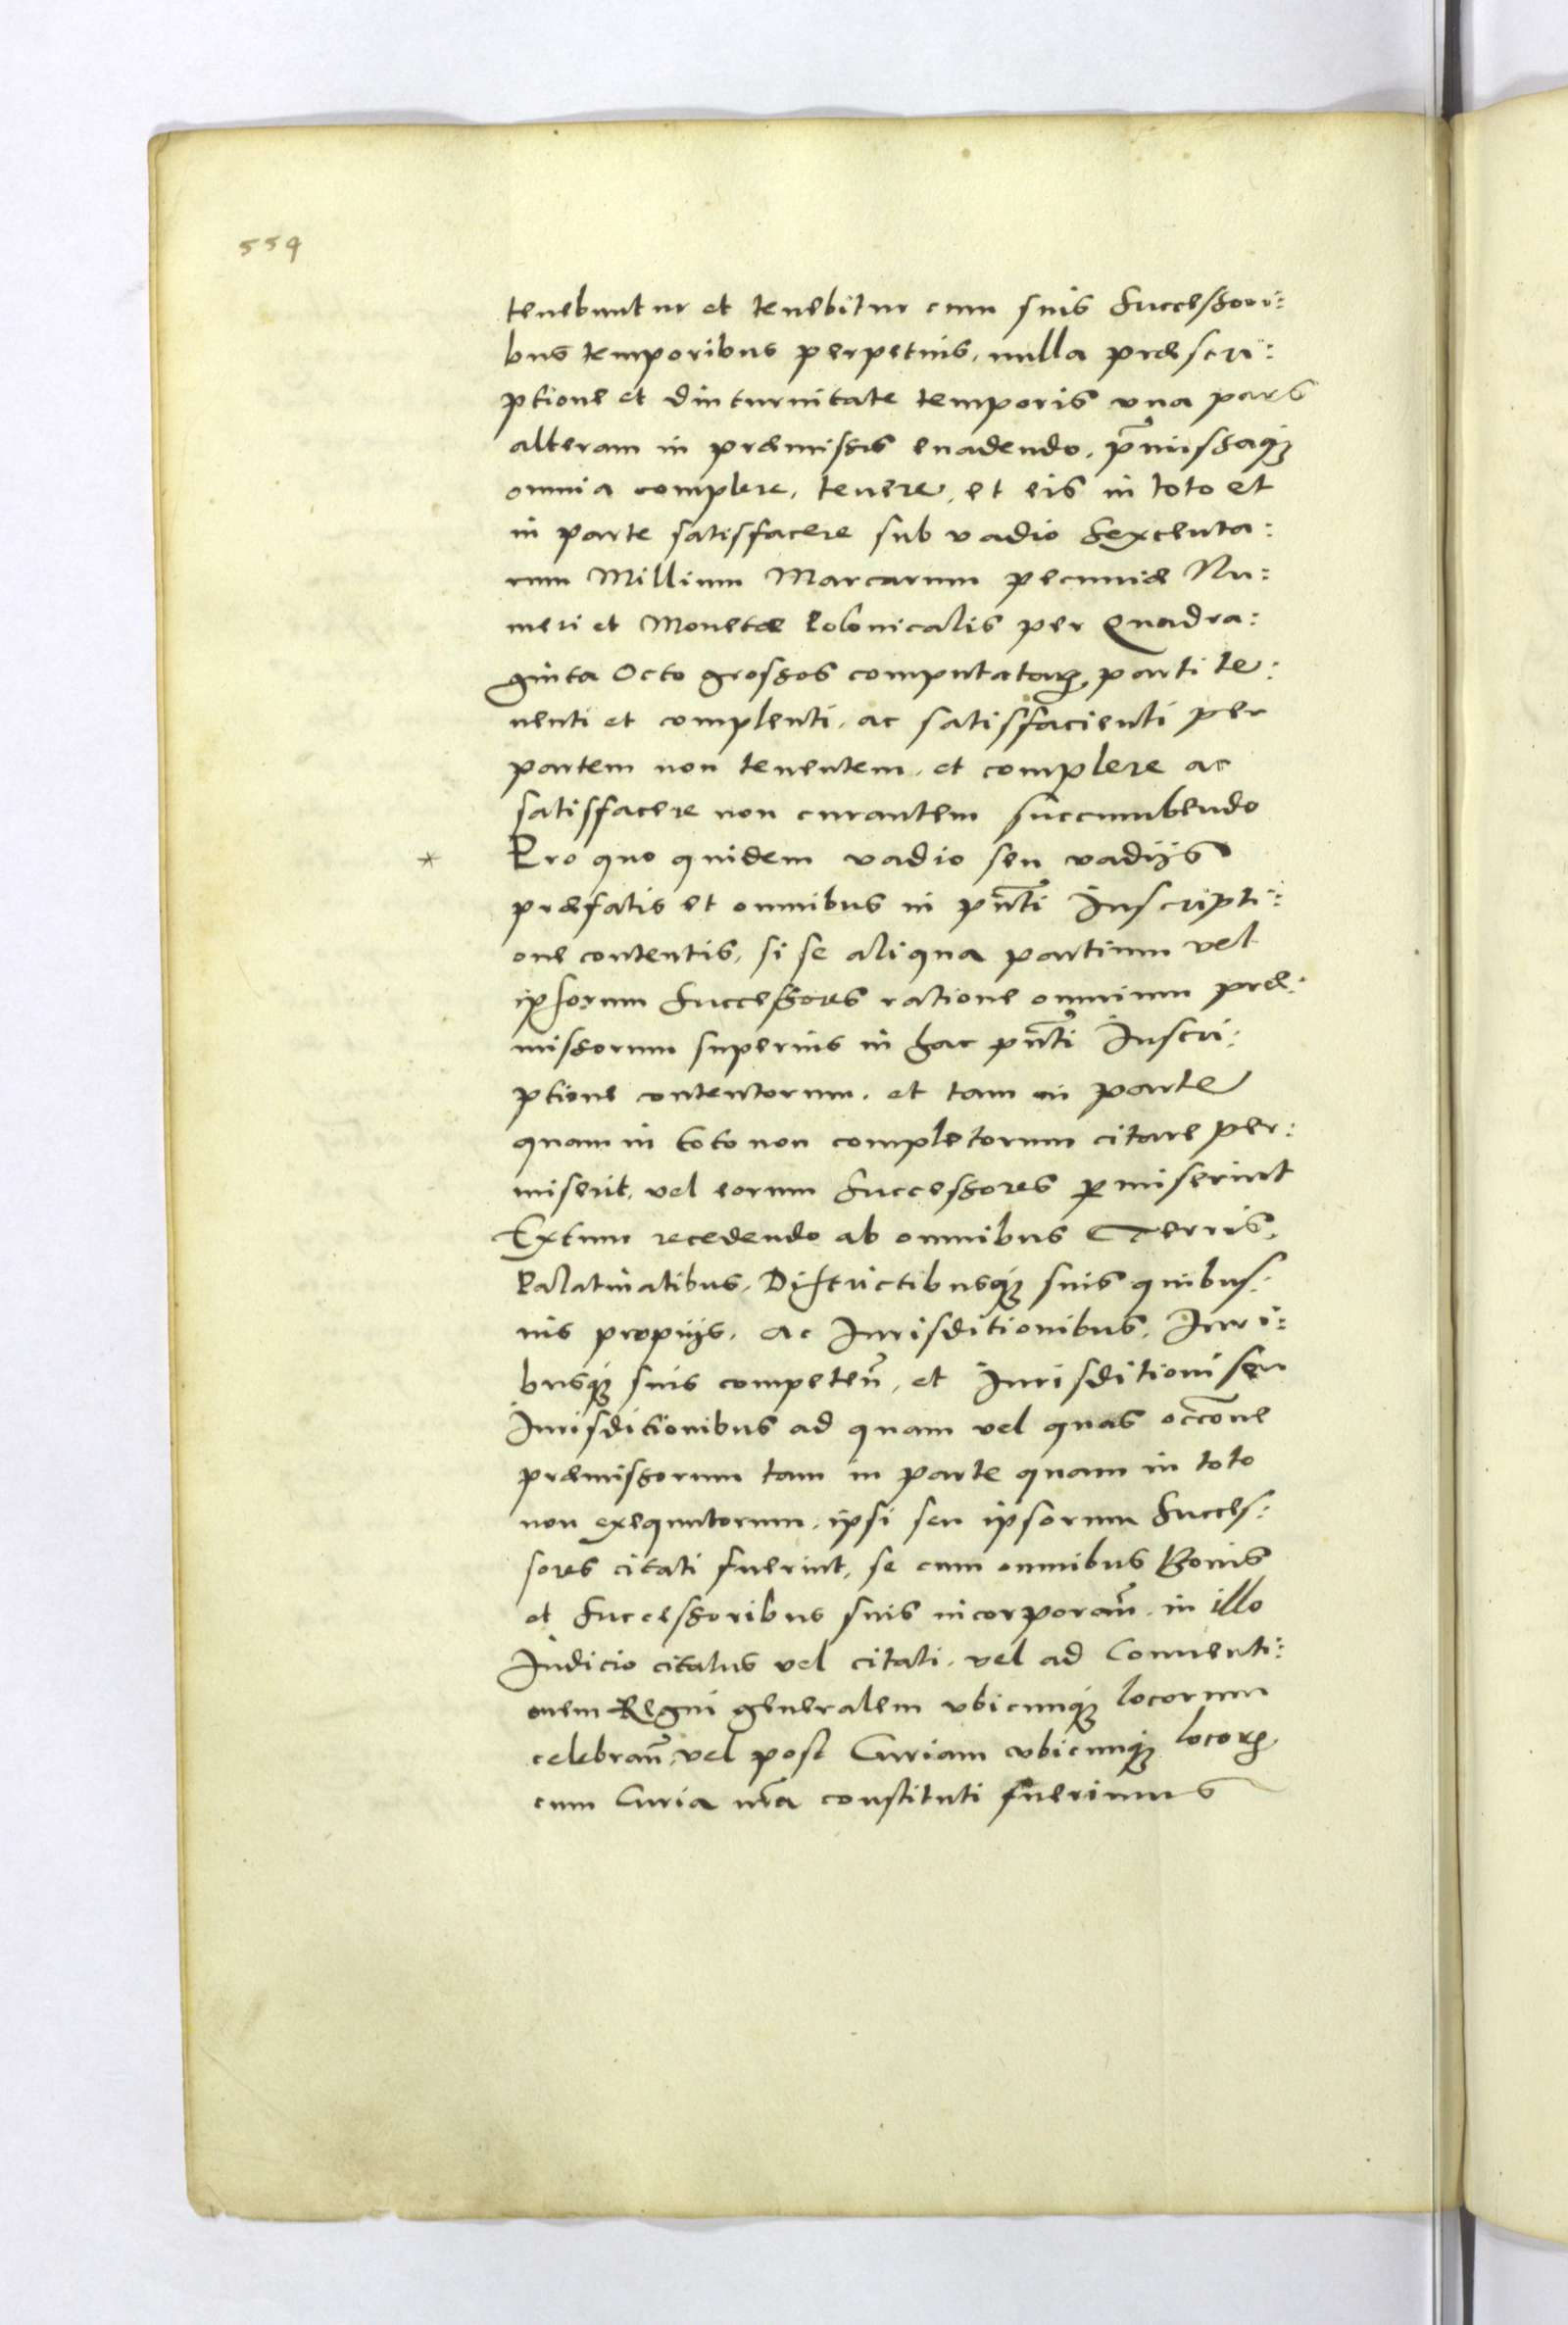 559
tenebuntur et tenebitur cum suis Successori:
bus temporibus perpetuis, nulla præscri:
ptione et diuturnitate temporis vna pars
alteram in præmissis euadendo, p̃missaqꝫ
omnia complere, tenere, et eis in toto et
in parte satisfacere sub vadio Sexcenta:
rum Millium Marcarum pecuniæ Nu:
meri et Monetæ Polonicalis per Quadra:
ginta Octo grossos computatarꝝ, parti te:
nenti et complenti, ac satisfacienti per
partem non tenentem, et complere ac
satisfacere non curantem succumbendo
* Pro quo quidem vadio seu vadijs
præfatis et omnibus in pñti Inscripti:
one contentis, si se aliqua partium vel
ipsorum Successores ratione omnium præ:
missorum superius in hac pñti Inscri:
ptione contentorum, et tam in parte
quam in toto non completorum citare per:
miserit, vel eorum Successores ꝑmiserint
Extum recedendo ab omnibus Terris,
Palatinatibus, Districtibusqꝫ suis quibus:
uis proprijs, ac Iurisditionibus, Iuri:
busqꝫ suis competeñ, et Iurisditioni seu
Iurisditionibus ad quam vel quas occõne
præmissorum tam in parte quam in toto
non exequutorum, ipsi seu ipsorum Succes:
sores citati fuerint, se cum omnibus Bonis
et Successoribus suis incorporañ, in illo
Iudicio citatus vel citati, vel ad Conuenti:
onem Regni generalem vbicunqꝫ locorum
celebrañ, vel post Curiam vbicunqꝫ locorꝝ
cum Curia nr̃a constituti fuerimus